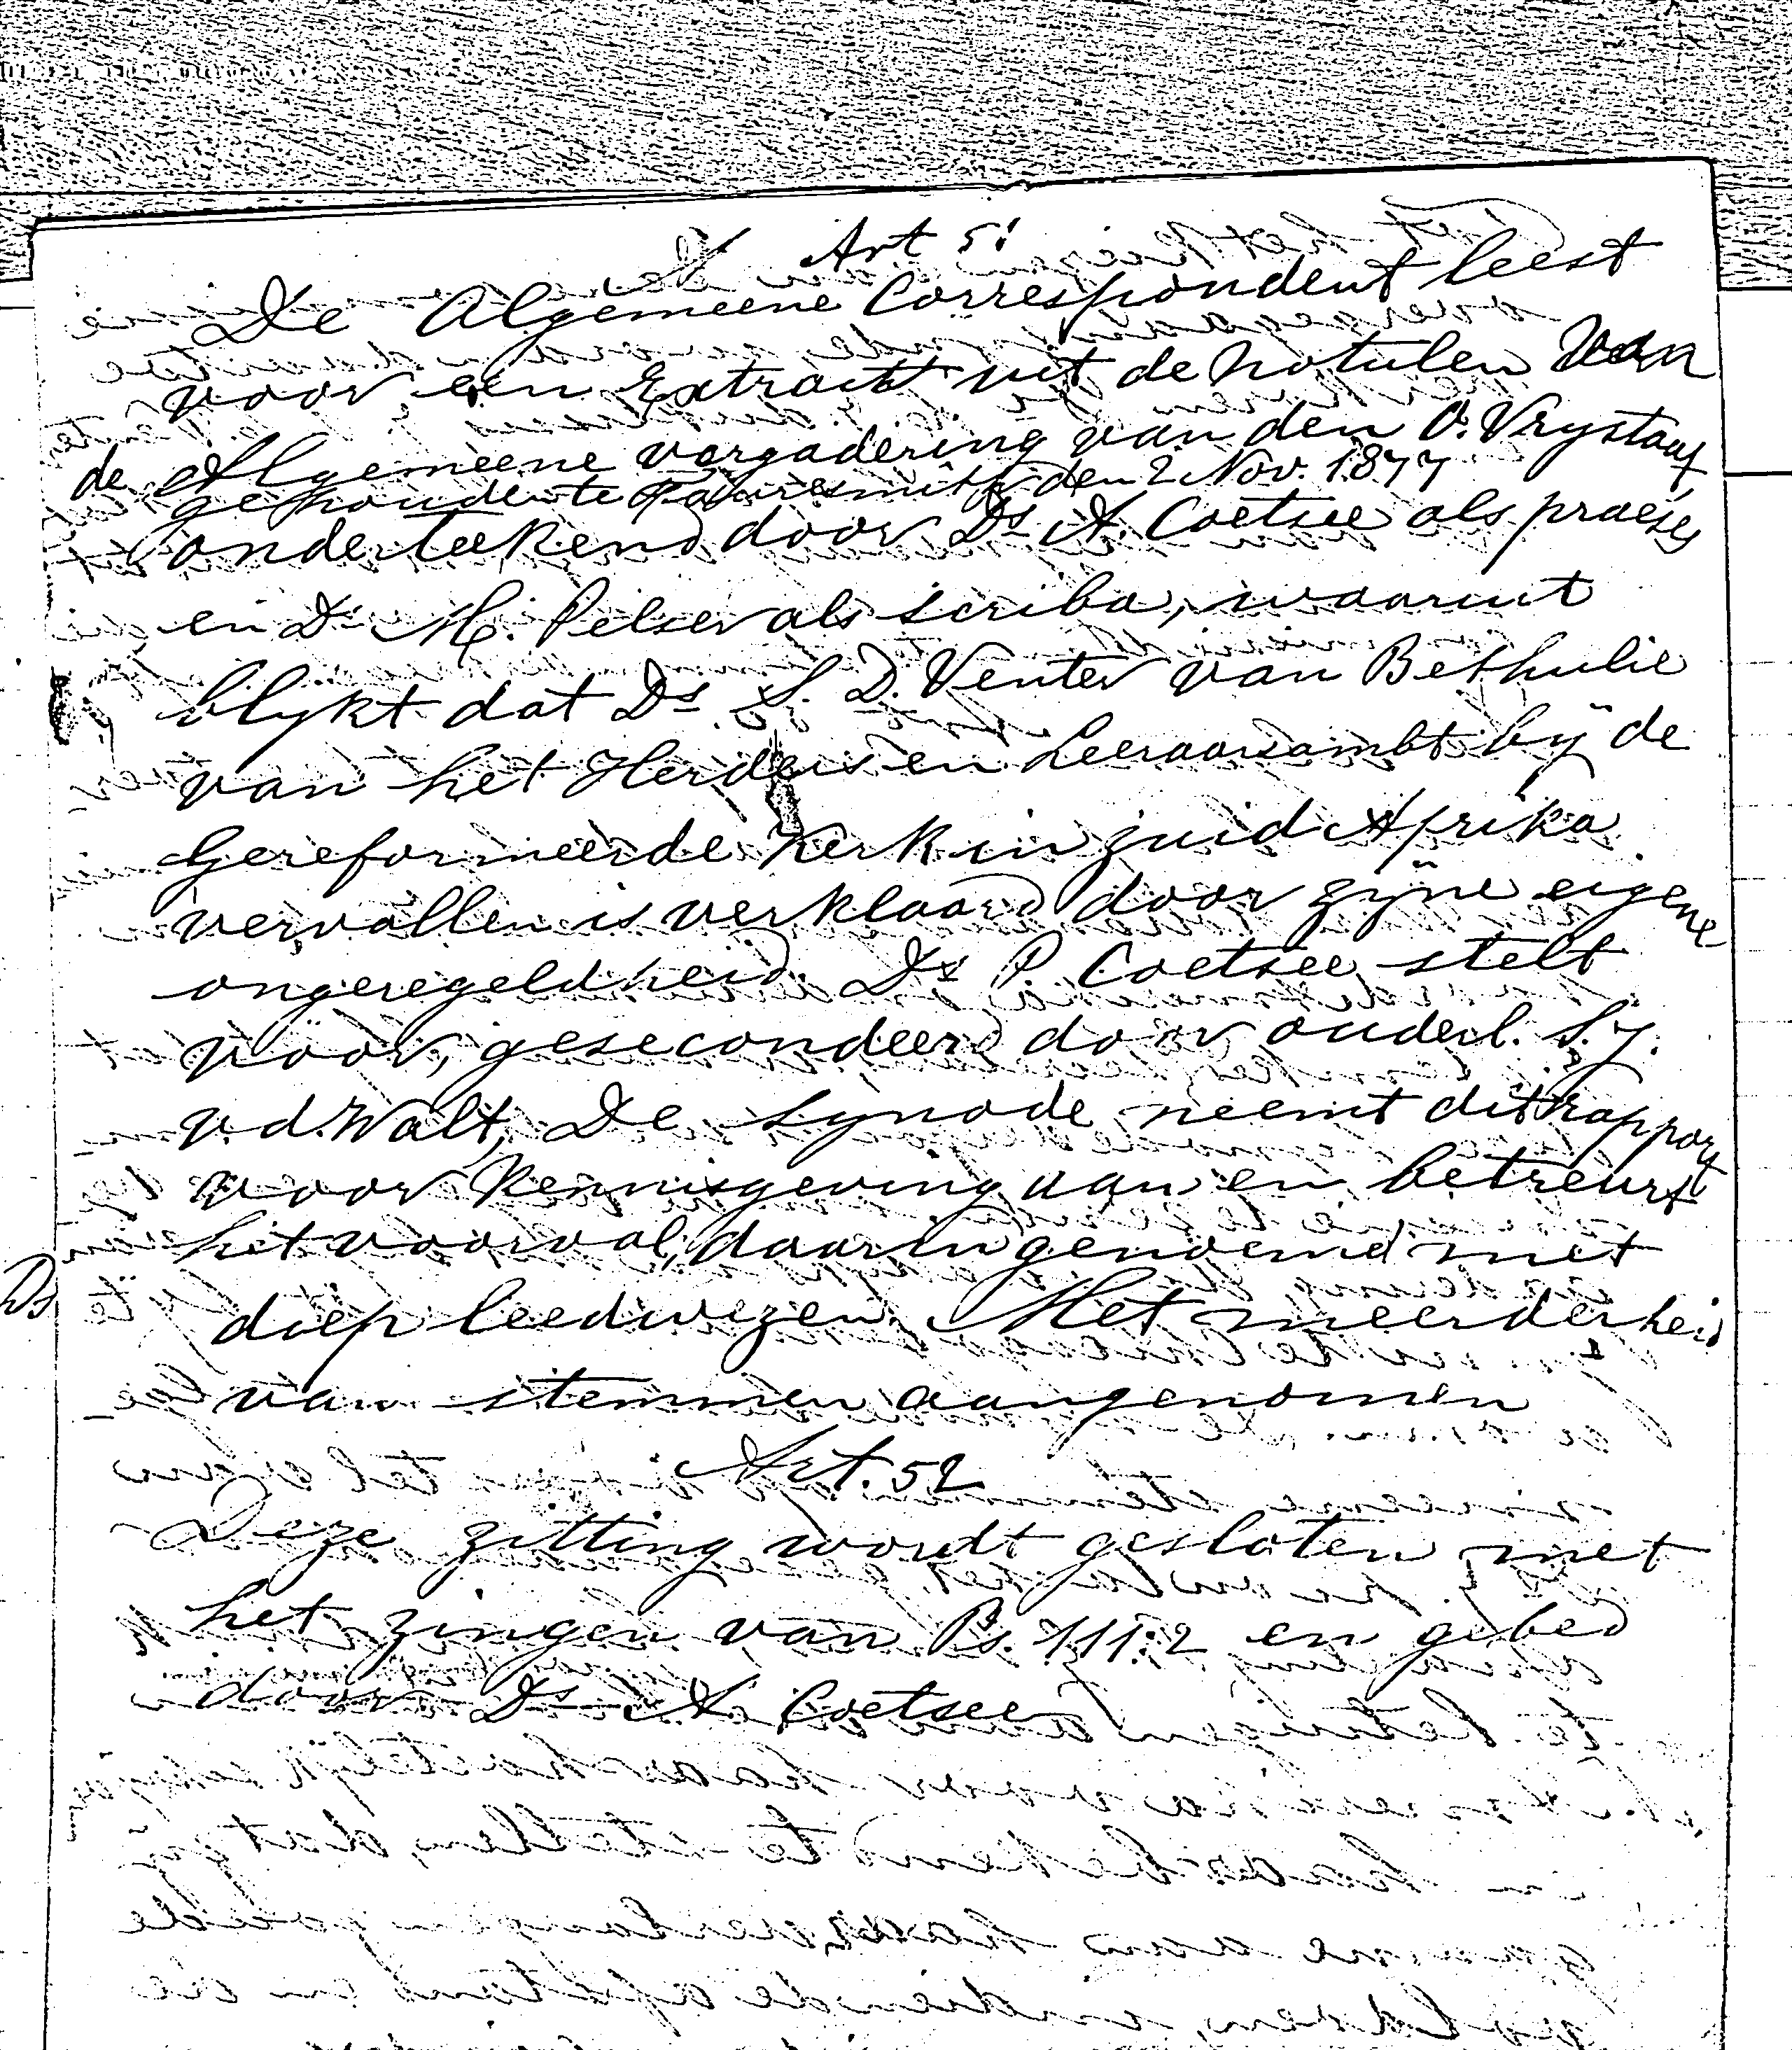 Art 51
De Algemeene Correspondent leest
voor een Extract uit de notulen van
de Algemeene vergadering van den O. Vrystaat
gehouden te Fauresmith den 2 Nov. 1877
onderteekend door Ds A. Coetsee als praeses
en Ds M. Pelser als scriba, waaruit
blykt dat Ds S. D. Venter van Bethulie
van het Herders en Leeraarsambt by de
Gereformeerde Kerk in zuid Afrika
vervallen is verklaard door zyne eigene
ongeregeldheid. Ds P. Coetsee stelt
voor, gesecondeerd door ouderl. S. J.
v.d. Walt, De synode neemt dit rapport
voor kennisgeving aan en betreurt
het voorval, daarin genoemd met
Ds
diep leedwezen. Met meerderheid
van stemmen aangenomen
Art. 52
Deze zitting wordt gesloten met
het zingen van Ps. 111:2 en gebed
door Ds A. Coetsee